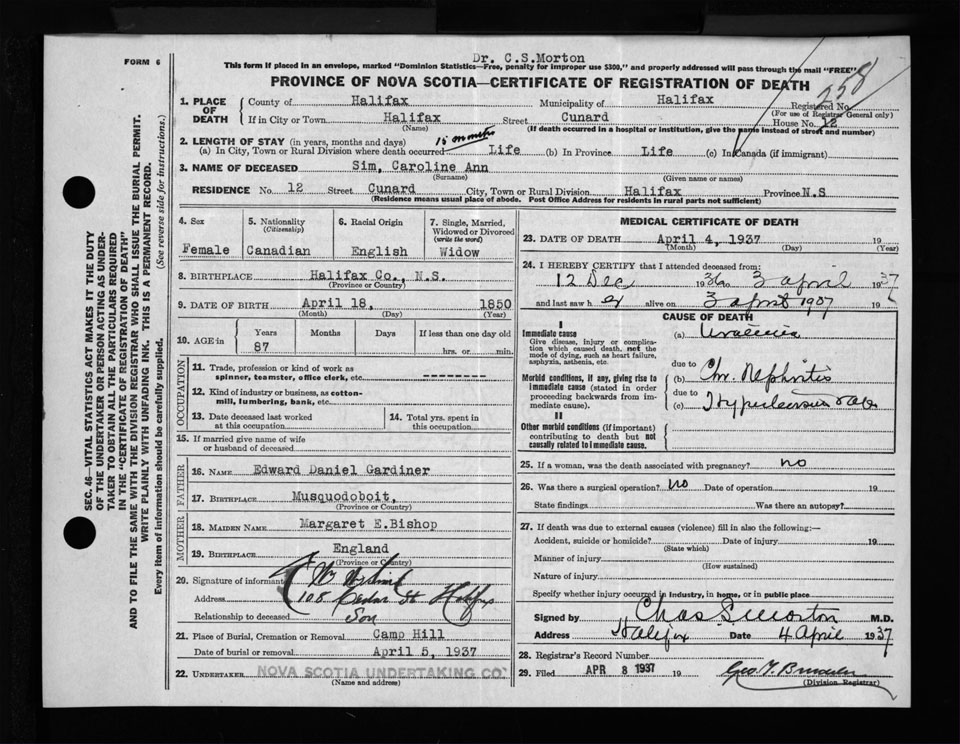 Dr. C.S.Morton
FORM 6
This form if placed in an envelope, marked "Dominion Statistics—Free, penalty for improper use $300," and properly addressed will pass through the mail "FREE"
PROVINCE OF NOVA SCOTIA—CERTIFICATE OF REGISTRATION OF DEATH
258
1. PLACE OF DEATH
County of Halifax Municipality of Halifax Registered No.
(For use of Registrar General only)
If in City or Town Halifax Street Cunard House No. 12
(Name) (If death occurred in a hospital or institution, give the name instead of street and number)
2. LENGTH OF STAY (in years, months and days) 15 months
(a) In City, Town or Rural Division where death occurred Life (b) In Province Life (c) In Canada (if immigrant)
3. NAME OF DECEASED Sim, Caroline Ann
(Surname) (Given name or names)
RESIDENCE No. 12 Street Cunard City, Town or Rural Division Halifax Province N.S
(Residence means usual place of abode. Post Office Address for residents in rural parts not sufficient)
SEC. 46—VITAL STATISTICS ACT MAKES IT THE DUTY
OF THE UNDERTAKER OR PERSON ACTING AS UNDER-
TAKER TO OBTAIN ALL THE PARTICULARS REQUIRED
IN THE "CERTIFICATE OF REGISTRATION OF DEATH"
AND TO FILE THE SAME WITH THE DIVISION REGISTRAR WHO SHALL ISSUE THE BURIAL PERMIT.
WRITE PLAINLY WITH UNFADING INK. THIS IS A PERMANENT RECORD.
Every item of information should be carefully supplied. (See reverse side for instructions.)
4. Sex
Female
5. Nationality
(Citizenship)
Canadian
6. Racial Origin
English
7. Single, Married,
Widowed or Divorced
(write the word)
Widow
8. BIRTHPLACE Halifax Co., N.S.
(Province or Country)
9. DATE OF BIRTH April 18, 1850
(Month) (Day) (Year)
10. AGE in Years Months Days If less than one day old
87 hrs. or min.
OCCUPATION
11. Trade, profession or kind of work as
spinner, teamster, office clerk, etc. ---------
12. Kind of industry or business, as cotton-
mill, lumbering, bank, etc.
13. Date deceased last worked
at this occupation
14. Total yrs. spent in
this occupation
15. If married give name of wife
or husband of deceased
FATHER
16. NAME Edward Daniel Gardiner
17. BIRTHPLACE Musquodoboit,
(Province or Country)
MOTHER
18. MAIDEN NAME Margaret E.Bishop
19. BIRTHPLACE England
(Province or Country)
20. Signature of informant
Address 108 St Halifax
Relationship to deceased Son
21. Place of Burial, Cremation or Removal Camp Hill
Date of burial or removal April 5, 1937
22. UNDERTAKER NOVA SCOTIA UNDERTAKING CO'
(Name and address)
MEDICAL CERTIFICATE OF DEATH
23. DATE OF DEATH April 4, 1937 19
(Month) (Day) (Year)
24. I HEREBY CERTIFY that I attended deceased from:
12 Dec 1936 to 3 april 1937
and last saw h er alive on 3 april 1937 19
CAUSE OF DEATH
I
Immediate cause
Give disease, injury or complica-
tion which caused death, not the
mode of dying, such as heart failure,
asphyxia, asthenia, etc.
(a) Uraemia
due to
Morbid conditions, if any, giving rise to
immediate cause (stated in order
proceeding backwards from im-
mediate cause).
(b) Chr. Nephritis
due to
(c) Hypertension
II
Other morbid conditions (if important)
contributing to death but not
causally related to immediate cause.
25. If a woman, was the death associated with pregnancy? no
26. Was there a surgical operation? no Date of operation 19
State findings Was there an autopsy?
27. If death was due to external causes (violence) fill in also the following:—
Accident, suicide or homicide? Date of injury 19
(State which)
Manner of injury
(How sustained)
Nature of injury
Specify whether injury occurred in industry, in home, or in public place
Signed by Chas S Morton M.D.
Address Halifax Date 4 April 1937
28. Registrar's Record Number
29. Filed APR 8 1937 19
(Division Registrar)